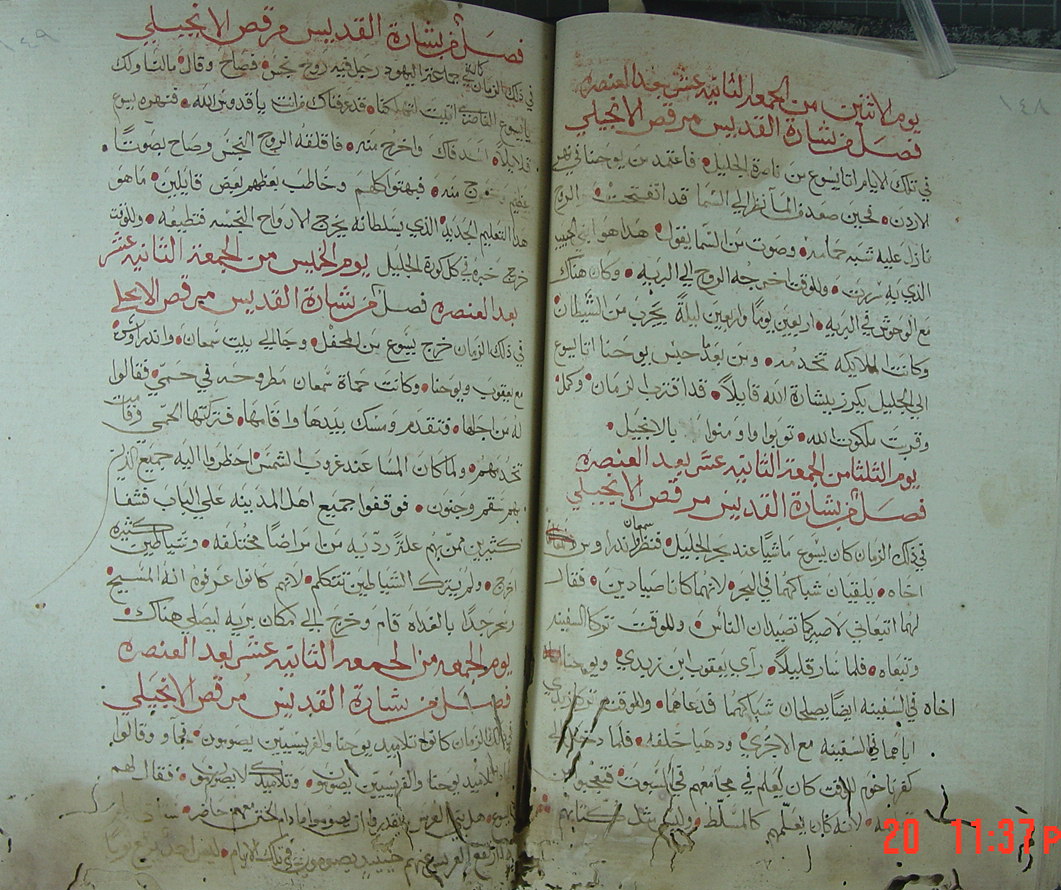 ١٤٨
يوم الاثنين من الجمعه الثانيه عشر بعد العنصره
فصل من بشارة القديس مرقص الانجيلي
في تلك الايام اتا يسوع من ناصرة الجليل • فاعتمد من يوحنا في نهر
الاردن • فحين صعد من الما نظر الي السما قد انفتحت • الروح
نازل عليه شبه حمامه • وصوت من السما يقول • هذا هو ابني الحبيب
الذي به سررت • وللوقت اخرجه الروح الي البريه • وكان هناك
مع الوحوش في البريه • اربعين يوماً واربعين ليلةً يجرب من الشيطان
وكانت الملايكه تخدمه • ومن بعد حبس يوحنا اتا يسوع
الي الجليل يكرز ببشارة الله قايلاً • قد اقترب الزمان • وكمل
وقربت ملكوت الله • توبوا وامنوا بالانجيل •
يوم الثلثا من الجمعة الثانيه عشر بعد العنصره
فصل من بشارة القديس مرقص الانجيلي
في ذلك الزمان كان يسوع ماشياً عند بحر الجليل • فنظر سمعان واندراوس
اخاه • يلقيان شباكهما في البحر • لانهما كانا صيادين • فقال
لهما اتبعاني لاصيركما تصيدان الناس • وللوقت تركا السفينه
وتبعاه • فلما سار قليلاً • راي يعقوب ابن زبدي • ويوحنا
اخاه في السفينه ايضاً يصلحان شباكهما فدعاهما • وللوقت تركا زبدي
اباهما في السفينه مع الاجرى • وذهبا خلفه • فلما دخل الي
كفرناحوم للوقت كان يعلم في مجامعهم في السبوت • فتعجبوا من
• لانه كان يعلمهم كالمسلط • وليس مثل كتابهم
20 11:37 P
١٤٩
فصل من بشارة القديس مرقص الانجيلي
في ذلك الزمان كان في جماعة اليهود رجل فيه روح نجس • فصاح وقال • مالنا ولك
يا يسوع الناصري اتيت لتهلكنا • قد عرفناك من انت يا قدوس الله • فنهره يسوع
قايلاً • اسدد فاك واخرج منه • فاقلقه الروح النجس وصاح بصوت
عظيم وخرج منه • فبهتوا كلهم وخاطب بعظهم بعض قايلين • ماهو
هذا التعليم الجديد • الذي بسلطانه يخرج الارواح النجسه فتطيعه • وللوقت
خرج خبره في كل كورة الجليل يوم الخميس من الجمعة الثانية عشر
بعد العنصره فصل من بشارة القديس مرقص الانجيلي
في ذلك الزمان خرج يسوع من المحفل • وجا الي بيت سمعان • واندراوس
مع يعقوب ويوحنا • وكانت حماة سمعان مطروحه في حمي • فقالوا
له من اجلها • فتقدم ومسك بيدها واقامها • فتركتها الحمي وقامت
تخدمهم • ولما كان المسا عند غروب الشمس احظروا اليه جميع الذين
بهم سقم وجنون • فوقفوا جميع اهل المدينه علي الباب فشفا
كثيرين ممن بهم علة رديه من امراضاً مختلفه • وشياطين كثيره
اخرج • ولم يترك الشياطين تتكلم • لانهم كانوا عرفوه انه المسيح
وسحر جداً بالغداه قام وخرج الي مكان بريه ليصلي هناك •
يوم الجمعه من الجمعه الثانيه عشر بعد العنصره
فصل من بشارة القديس مرقص الانجيلي
في ذلك الزمان كانوا تلاميذ يوحنا والفريسيين يصومون • فجاو وقالوا
تلاميذ يوحنا والفريسيين يصومون • وتلاميذك لا يصومون • فقال لهم
يسوع • هل بني العرس يقدروا ان يصوموا مادام الختن معهم حاضر •
العريس عنهم حينيذٍ يصومون في تلك الايام • ليس احد